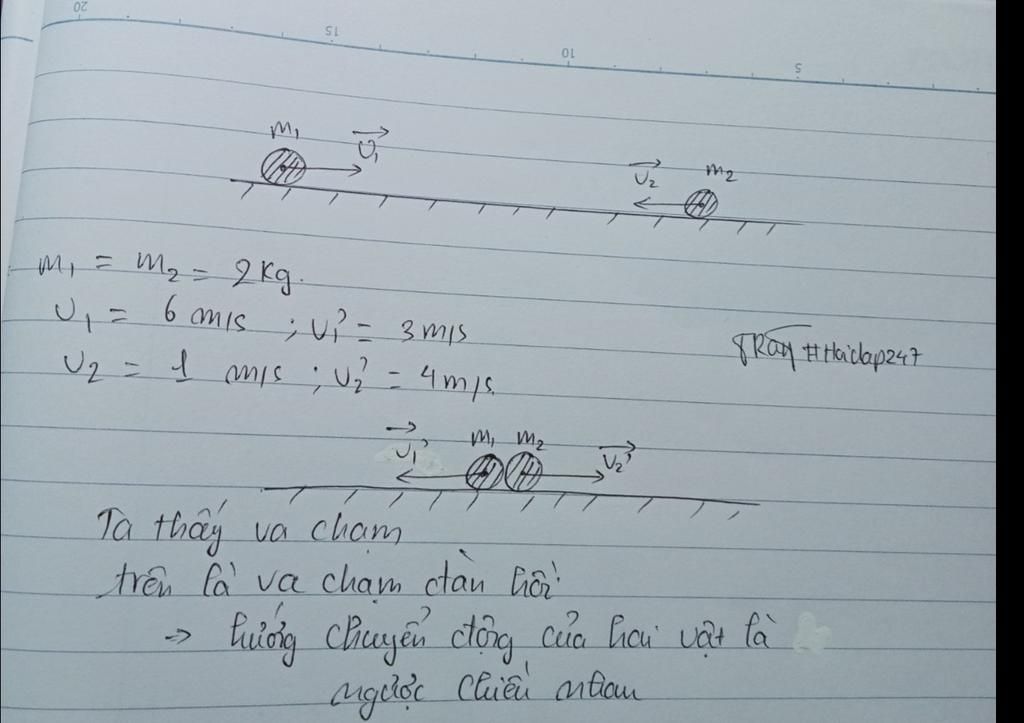 20 15 10 5
m₁ v₁
v₂ m₂
m₁ = m₂ = 2kg.
v₁ = 6 m/s ; v₁' = 3 m/s
TRay #Hoidap247
v₂ = 1 m/s ; v₂' = 4 m/s.
v₁' m₁ m₂ v₂'
Ta thấy va chạm
trên là va chạm đàn hồi
=> hướng chuyển động của hai vật là
ngược chiều nhau